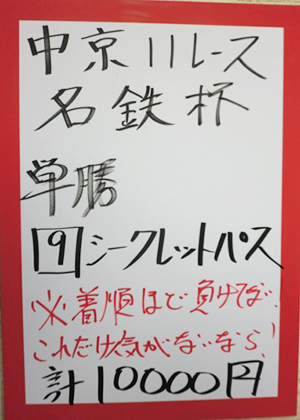 中京11レース
名鉄杯
単勝
9 シークレットパス
※着順ほど負けてない。
これだけ人気がないなら！
計10000円